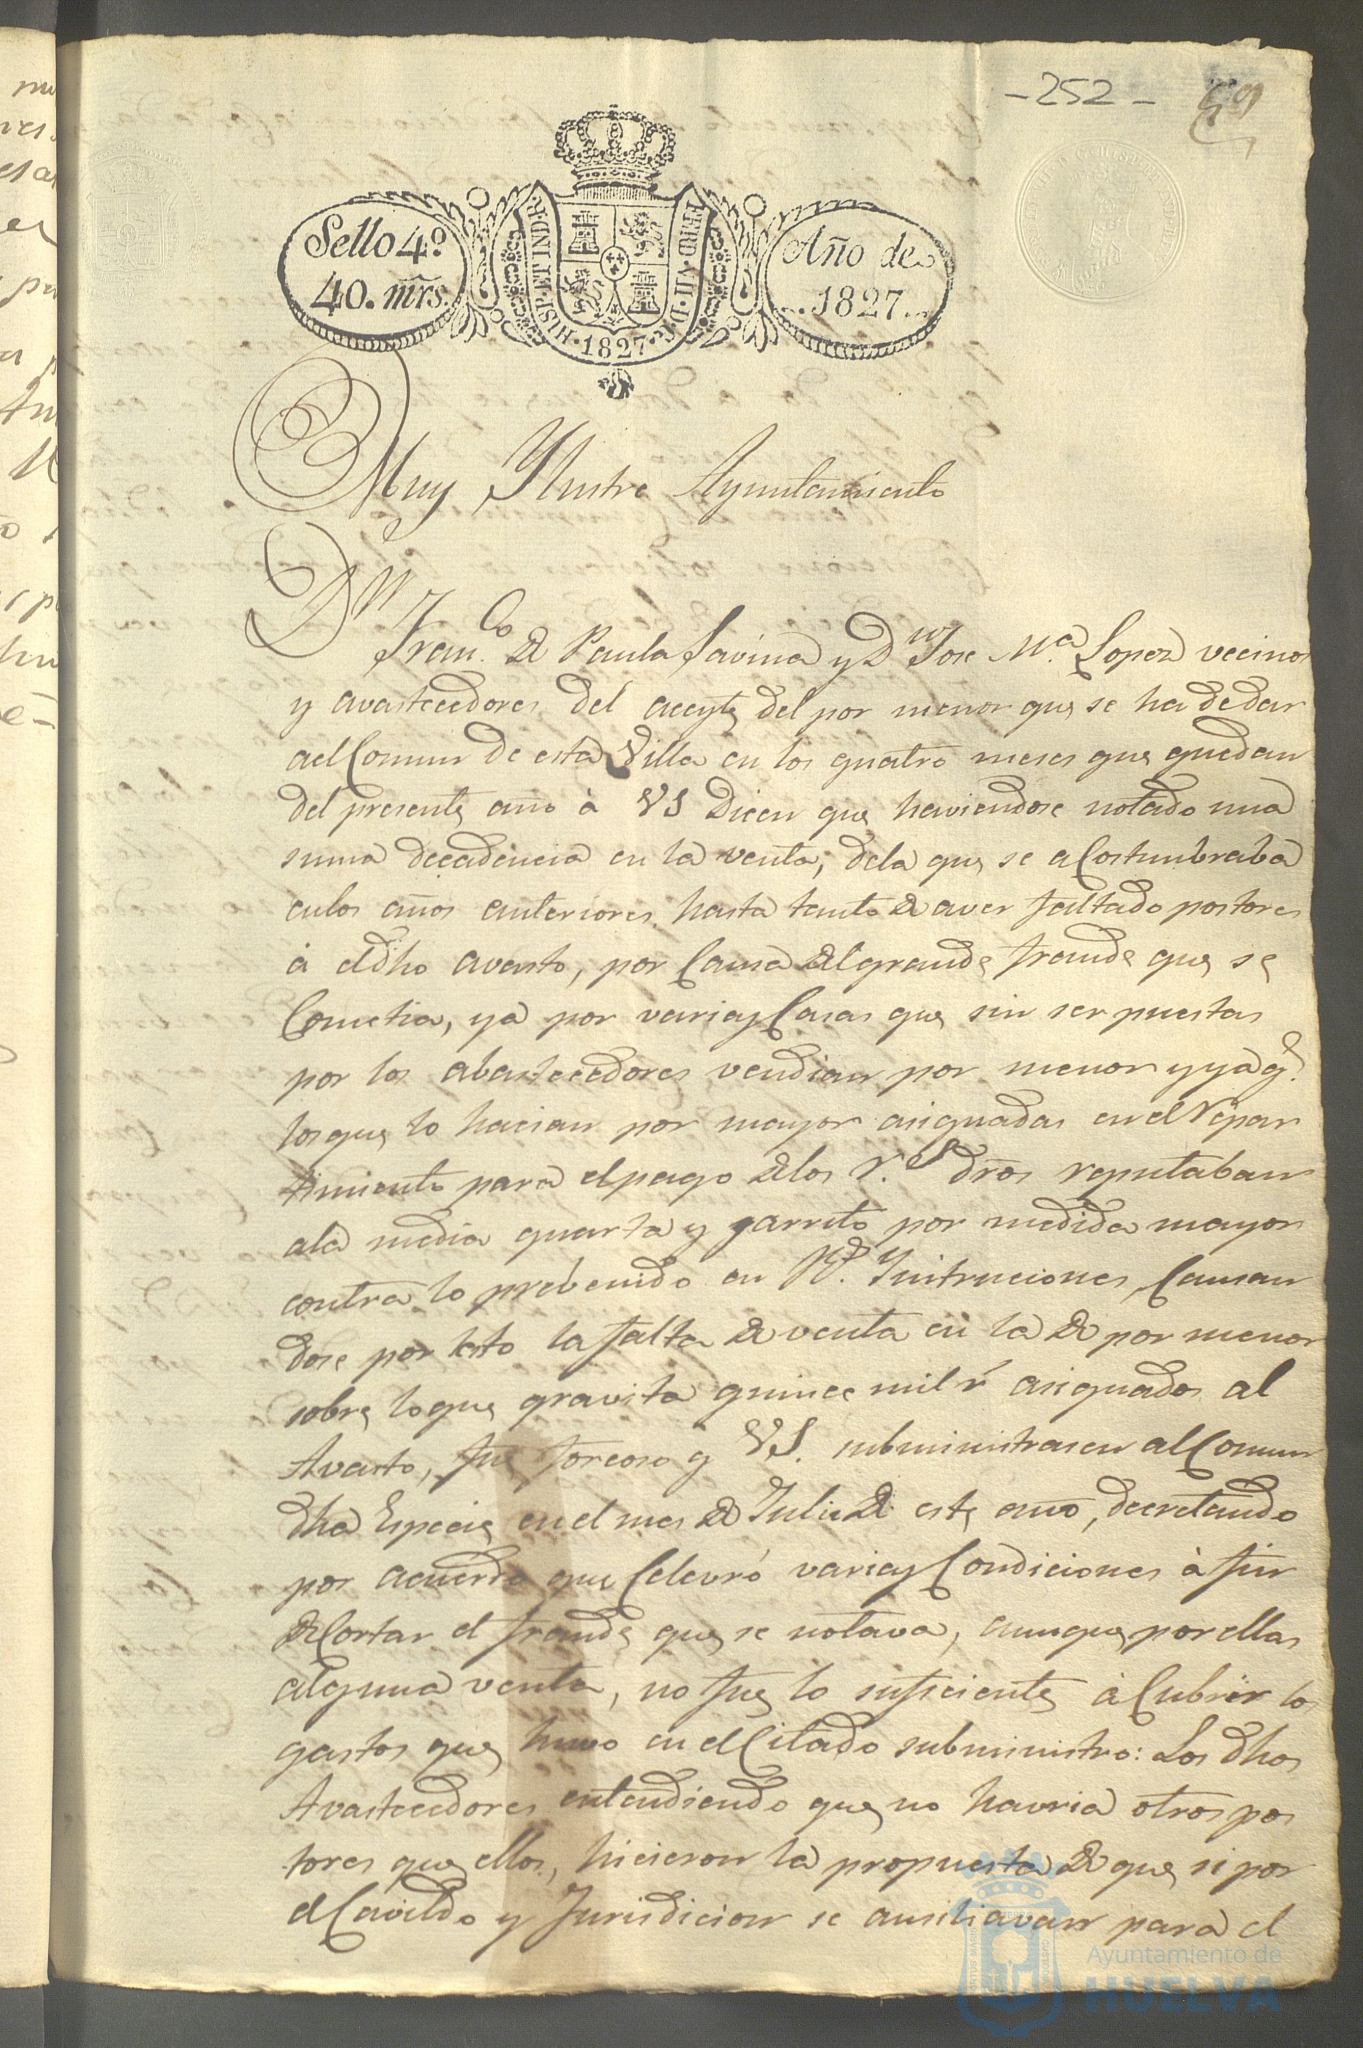 -252-
59
Sello 4º
40. mrs.
HISP. ET IND. R.
FERD. VII. D. G.
1827
Año de
1827.
Muy Ylustre Ayuntamiento
Dn Franco. de Paula Savina y Dn Jose Mª. Lopez vecinos
y avastecedores del aceyte del por menor que se ha de dar
ael Comun de esta Villa en los quatro meses que quedan
del presente año à VS Dicen que haviendose notado una
suma decadencia en la venta, dela que se aCostumbraba
enlos años anteriores, hasta tanto de aver faltado postores
à eldho avasto, por Causa del grande fraude que se
Cometia, ya por varias Casas que sin ser puestas
por los abastecedores vendian por menor y ya q.
losque lo hacian por mayor asignadas en el repar
timiento para el pago delos r.s dros reputaban
ala media quarta y jarrito por medida mayor
contra lo prebenido en Rs. Ynstruciones, Causan
dose por esto la falta de venta en la de por menor
sobre loque gravita quince mil r asignados al
Avasto, fue forcoso q VS. subministrasen al Comun
dha Especie en el mes de Julio de este año, decretando
por acuerdo que Celevró varias Condiciones à fin
de Cortar el fraude que se notava, aunque por ellas
alguna venta, no fue lo suficiente à Cubrir los
gastos que huvo en el Citado subministro: Los dhos
Avastecedores entendiendo que no havria otros pos
tores que ellos, hicieron la propuesta de que si por
el Cavildo y Jurisdicion se ausiliavan para el
Ayuntamiento de
HUELVA